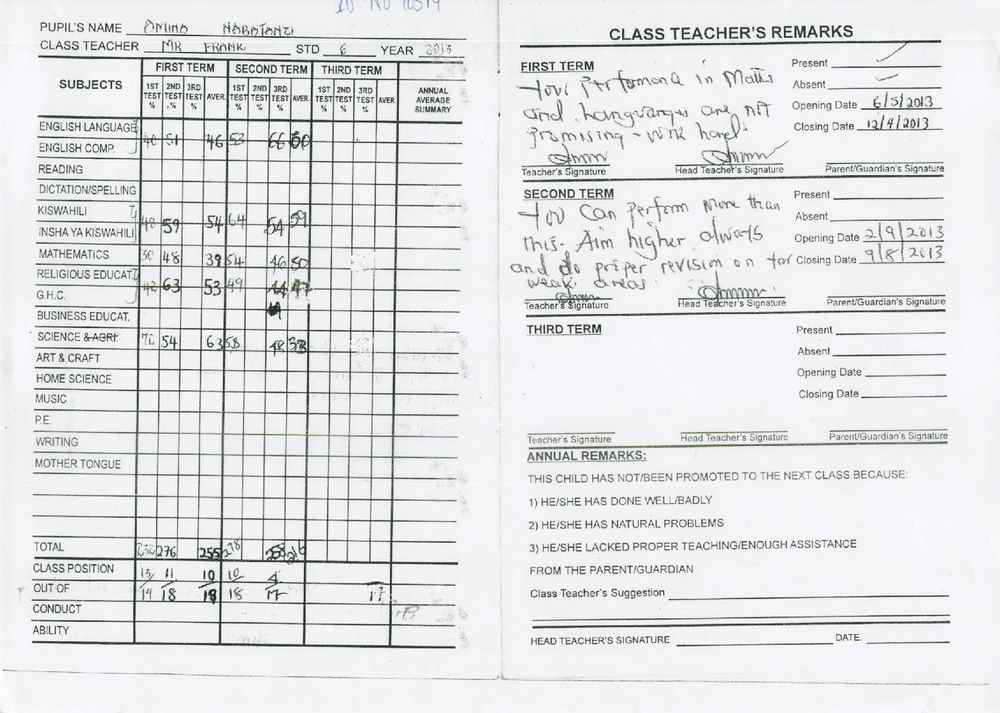 ID NO 10519
PUPIL'S NAME AMINA NABATANZI
CLASS TEACHER MR FRANK STD 6 YEAR 2013
SUBJECTS FIRST TERM SECOND TERM THIRD TERM ANNUAL AVERAGE SUMMARY
1ST TEST % 2ND TEST % 3RD TEST % AVER. 1ST TEST % 2ND TEST % 3RD TEST % AVER. 1ST TEST % 2ND TEST % 3RD TEST % AVER
ENGLISH LANGUAGE
ENGLISH COMP. 40 51 46 53 66 60
READING
DICTATION/SPELLING
KISWAHILI
INSHA YA KISWAHILI 48 59 54 64 54 59
MATHEMATICS 30 48 39 54 46 50
RELIGIOUS EDUCAT.
G.H.C. 42 63 53 49 44 47
BUSINESS EDUCAT.
SCIENCE & AGRI. 72 54 63 58
ART & CRAFT
HOME SCIENCE
MUSIC
P.E.
WRITING
MOTHER TONGUE
TOTAL 232 276 255 278 258
CLASS POSITION 13 11 10 10 4
OUT OF 19 18 18 18 17 17
CONDUCT
ABILITY
CLASS TEACHER'S REMARKS
FIRST TERM
Present
Your performance in Maths
Absent
and languages are not
Opening Date 6/5/2013
promising - work hard.
Closing Date 12/4/2013
Teacher's Signature Head Teacher's Signature Parent/Guardian's Signature
SECOND TERM
Present
You can perform more than
Absent
this. Aim higher always
Opening Date 2/9/2013
and do proper revision on
Closing Date 9/8/2013
weak areas.
Teacher's Signature Head Teacher's Signature Parent/Guardian's Signature
THIRD TERM
Present
Absent
Opening Date
Closing Date
Teacher's Signature Head Teacher's Signature Parent/Guardian's Signature
ANNUAL REMARKS:
THIS CHILD HAS NOT/BEEN PROMOTED TO THE NEXT CLASS BECAUSE:
1) HE/SHE HAS DONE WELL/BADLY
2) HE/SHE HAS NATURAL PROBLEMS
3) HE/SHE LACKED PROPER TEACHING/ENOUGH ASSISTANCE
FROM THE PARENT/GUARDIAN
Class Teacher's Suggestion
HEAD TEACHER'S SIGNATURE DATE.